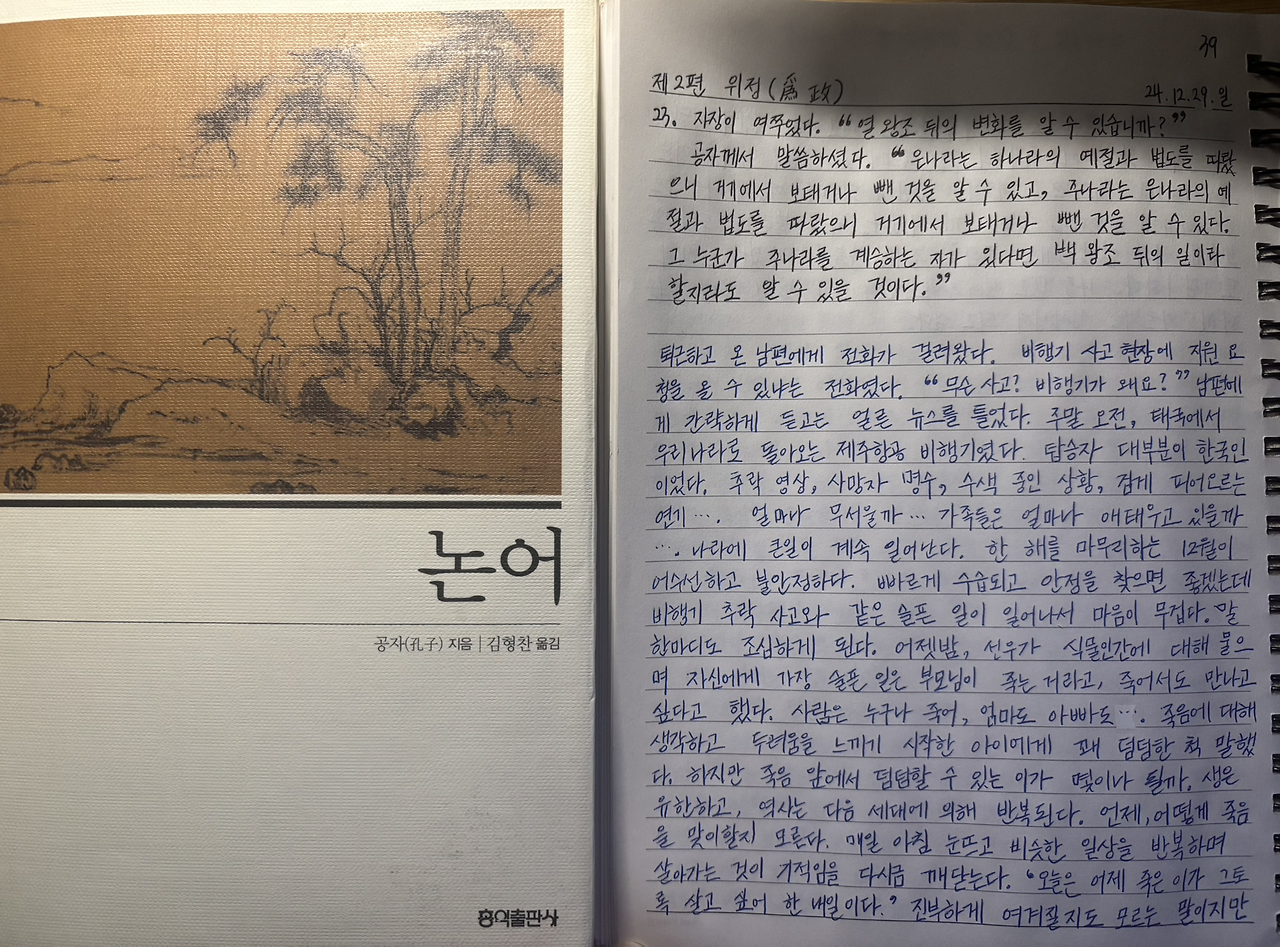 논어
공자(孔子) 지음 | 김형찬 옮김
홍익출판사
39
제2편 위정(爲政) 24.12.29.일
23. 자장이 여쭈었다. “열 왕조 뒤의 변화를 알 수 있습니까?”
공자께서 말씀하셨다. “은나라는 하나라의 예절과 법도를 따랐
으니 거기에서 보태거나 뺀 것을 알 수 있고, 주나라는 은나라의 예
절과 법도를 따랐으니 거기에서 보태거나 뺀 것을 알 수 있다.
그 누군가 주나라를 계승하는 자가 있다면 백 왕조 뒤의 일이라
할지라도 알 수 있을 것이다.”
퇴근하고 온 남편에게 전화가 걸려왔다. 비행기 사고 현장에 지원 요
청을 올 수 있냐는 전화였다. “무슨 사고? 비행기가 왜요?” 남편에
게 간략하게 듣고는 얼른 뉴스를 틀었다. 주말 오전, 태국에서
우리나라로 돌아오는 제주항공 비행기였다. 탑승자 대부분이 한국인
이었다. 추락 영상, 사망자 명수, 수색 중인 상황, 검게 피어오르는
연기…. 얼마나 무서울까… 가족들은 얼마나 애태우고 있을까
…. 나라에 큰일이 계속 일어난다. 한 해를 마무리하는 12월이
어수선하고 불안정하다. 빠르게 수습되고 안정을 찾으면 좋겠는데
비행기 추락 사고와 같은 슬픈 일이 일어나서 마음이 무겁다. 말
한마디도 조심하게 된다. 어젯밤, 선우가 식물인간에 대해 물으
며 자신에게 가장 슬픈 일은 부모님이 죽는 거라고, 죽어서도 만나고
싶다고 했다. 사람은 누구나 죽어, 엄마도 아빠도…. 죽음에 대해
생각하고 두려움을 느끼기 시작한 아이에게 꽤 덤덤한 척 말했
다. 하지만 죽음 앞에서 덤덤할 수 있는 이가 몇이나 될까. 생은
유한하고, 역사는 다음 세대에 의해 반복된다. 언제, 어떻게 죽음
을 맞이할지 모른다. 매일 아침 눈뜨고 비슷한 일상을 반복하며
살아가는 것이 기적임을 다시금 깨닫는다. “오늘은 어제 죽은 이가 그토
록 살고 싶어 한 내일이다.” 진부하게 여겨질지도 모르는 말이지만